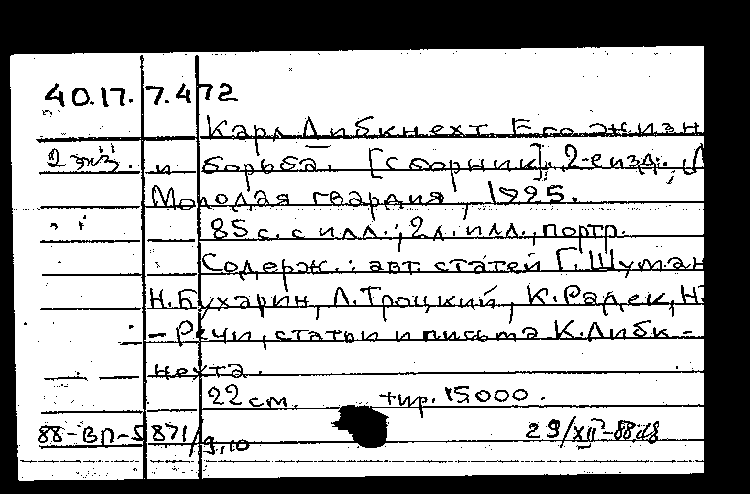 40.17.7.472
Карл Либкнехт. Его жизн
2 экз. и борьба. [Сборник]. 2-е изд. Л
Молодая гвардия, 1925.
85 с. с илл.; 2 л. илл., портр.
Содерж.: авт. статей Г. Шуман
Н. Бухарин, Л. Троцкий, К. Радек, Н.
- Речи, статьи и письма К. Либк-
нехта.
22 см. тир. 15000.
88-ВП-5871/9,10 29/XII-88